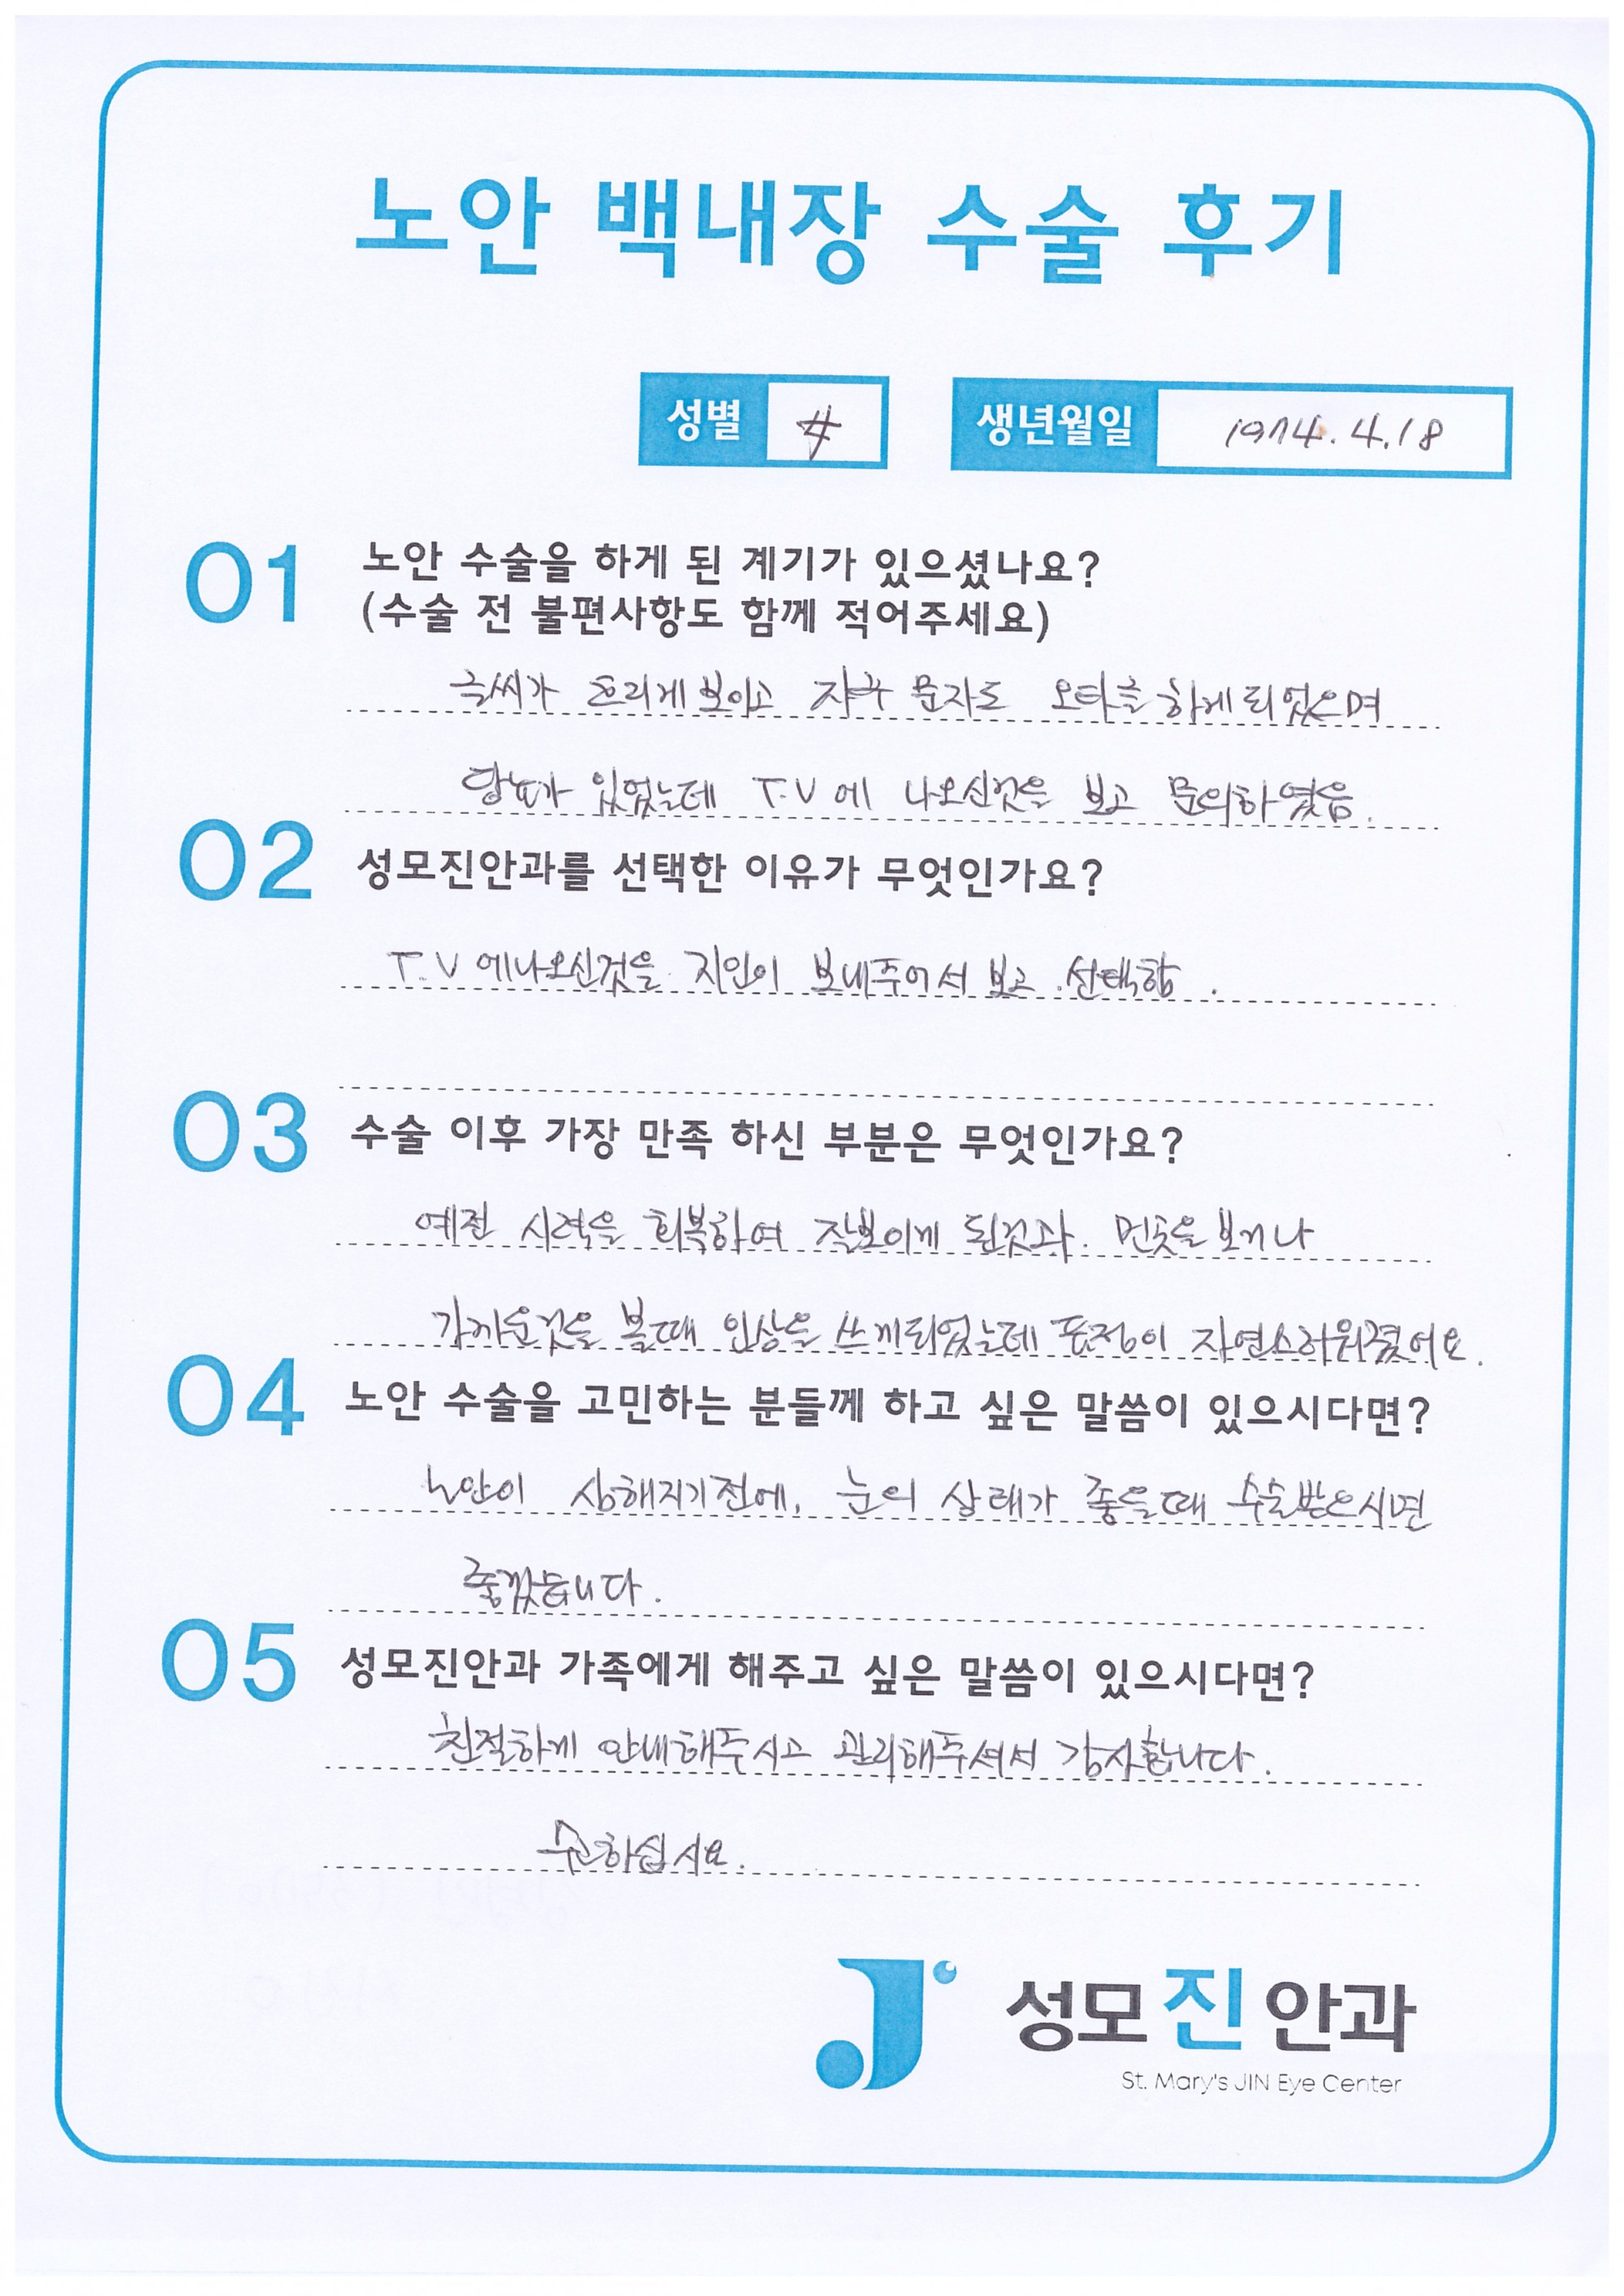 노안 백내장 수술 후기
성별 女 생년월일 1974.4.18
01 노안 수술을 하게 된 계기가 있으셨나요?
(수술 전 불편사항도 함께 적어주세요)
글씨가 흐리게 보이고 자꾸 문자도 오타를 하게 되었으며
당뇨가 있었는데 T.V에 나오신것을 보고 문의하였음.
02 성모진안과를 선택한 이유가 무엇인가요?
T.V에나오신것을 지인이 보내주어서 보고 선택함.
03 수술 이후 가장 만족 하신 부분은 무엇인가요?
예전 시력을 회복하여 잘보이게 된것과. 먼곳을 보거나
가까운것을 볼때 인상을 쓰게되었는데 표정이 자연스러워졌어요.
04 노안 수술을 고민하는 분들께 하고 싶은 말씀이 있으시다면?
노안이 심해지기전에, 눈의 상태가 좋을때 수술받으시면
좋겠습니다.
05 성모진안과 가족에게 해주고 싶은 말씀이 있으시다면?
친절하게 안내해주시고 관리해주셔서 감사합니다.
성모진안과
St. Mary's JIN Eye Center